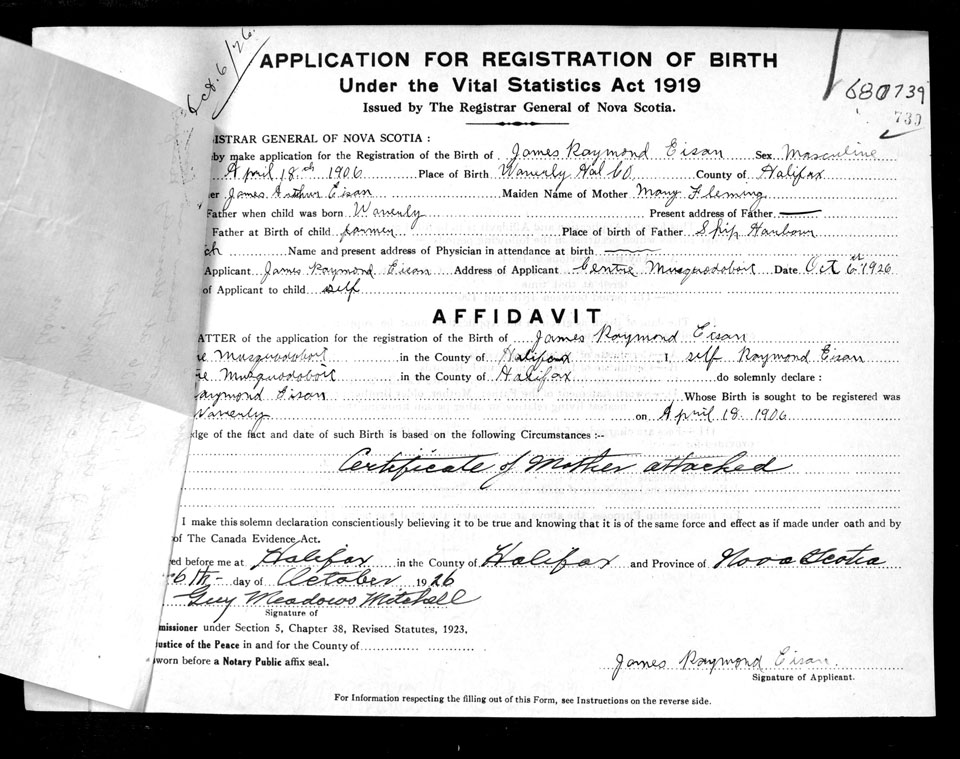 Oct. 6/26.
APPLICATION FOR REGISTRATION OF BIRTH
Under the Vital Statistics Act 1919
Issued by The Registrar General of Nova Scotia.
680739
739
ISTRAR GENERAL OF NOVA SCOTIA :
by make application for the Registration of the Birth of James Raymond Eisan Sex Masculine
April 18th 1906 Place of Birth Waverly Hal Co. County of Halifax
er James Arthur Eisan Maiden Name of Mother Mary Fleming
Father when child was born Waverly Present address of Father —
Father at Birth of child farmer Place of birth of Father Ship Harbour
ch Name and present address of Physician in attendance at birth —
Applicant James Raymond Eisan Address of Applicant Centre Musquodoboit Date Oct 6th 1926
of Applicant to child self
AFFIDAVIT
ATTER of the application for the registration of the Birth of James Raymond Eisan
re Musquodoboit in the County of Halifax I self Raymond Eisan
re Musquodoboit in the County of Halifax do solemnly declare :
aymond Eisan Whose Birth is sought to be registered was
Waverly on April 18. 1906
dge of the fact and date of such Birth is based on the following Circumstances :--
Certificate of Mother attached
I make this solemn declaration conscientiously believing it to be true and knowing that it is of the same force and effect as if made under oath and by
of The Canada Evidence Act.
ed before me at Halifax in the County of Halifax and Province of Nova Scotia
6th- day of October 1926
Guy Meadows Mitchell
Signature of
missioner under Section 5, Chapter 38, Revised Statutes, 1923,
ustice of the Peace in and for the County of
worn before a Notary Public affix seal.
James Raymond Eisan.
Signature of Applicant.
For Information respecting the filling out of this Form, see Instructions on the reverse side.